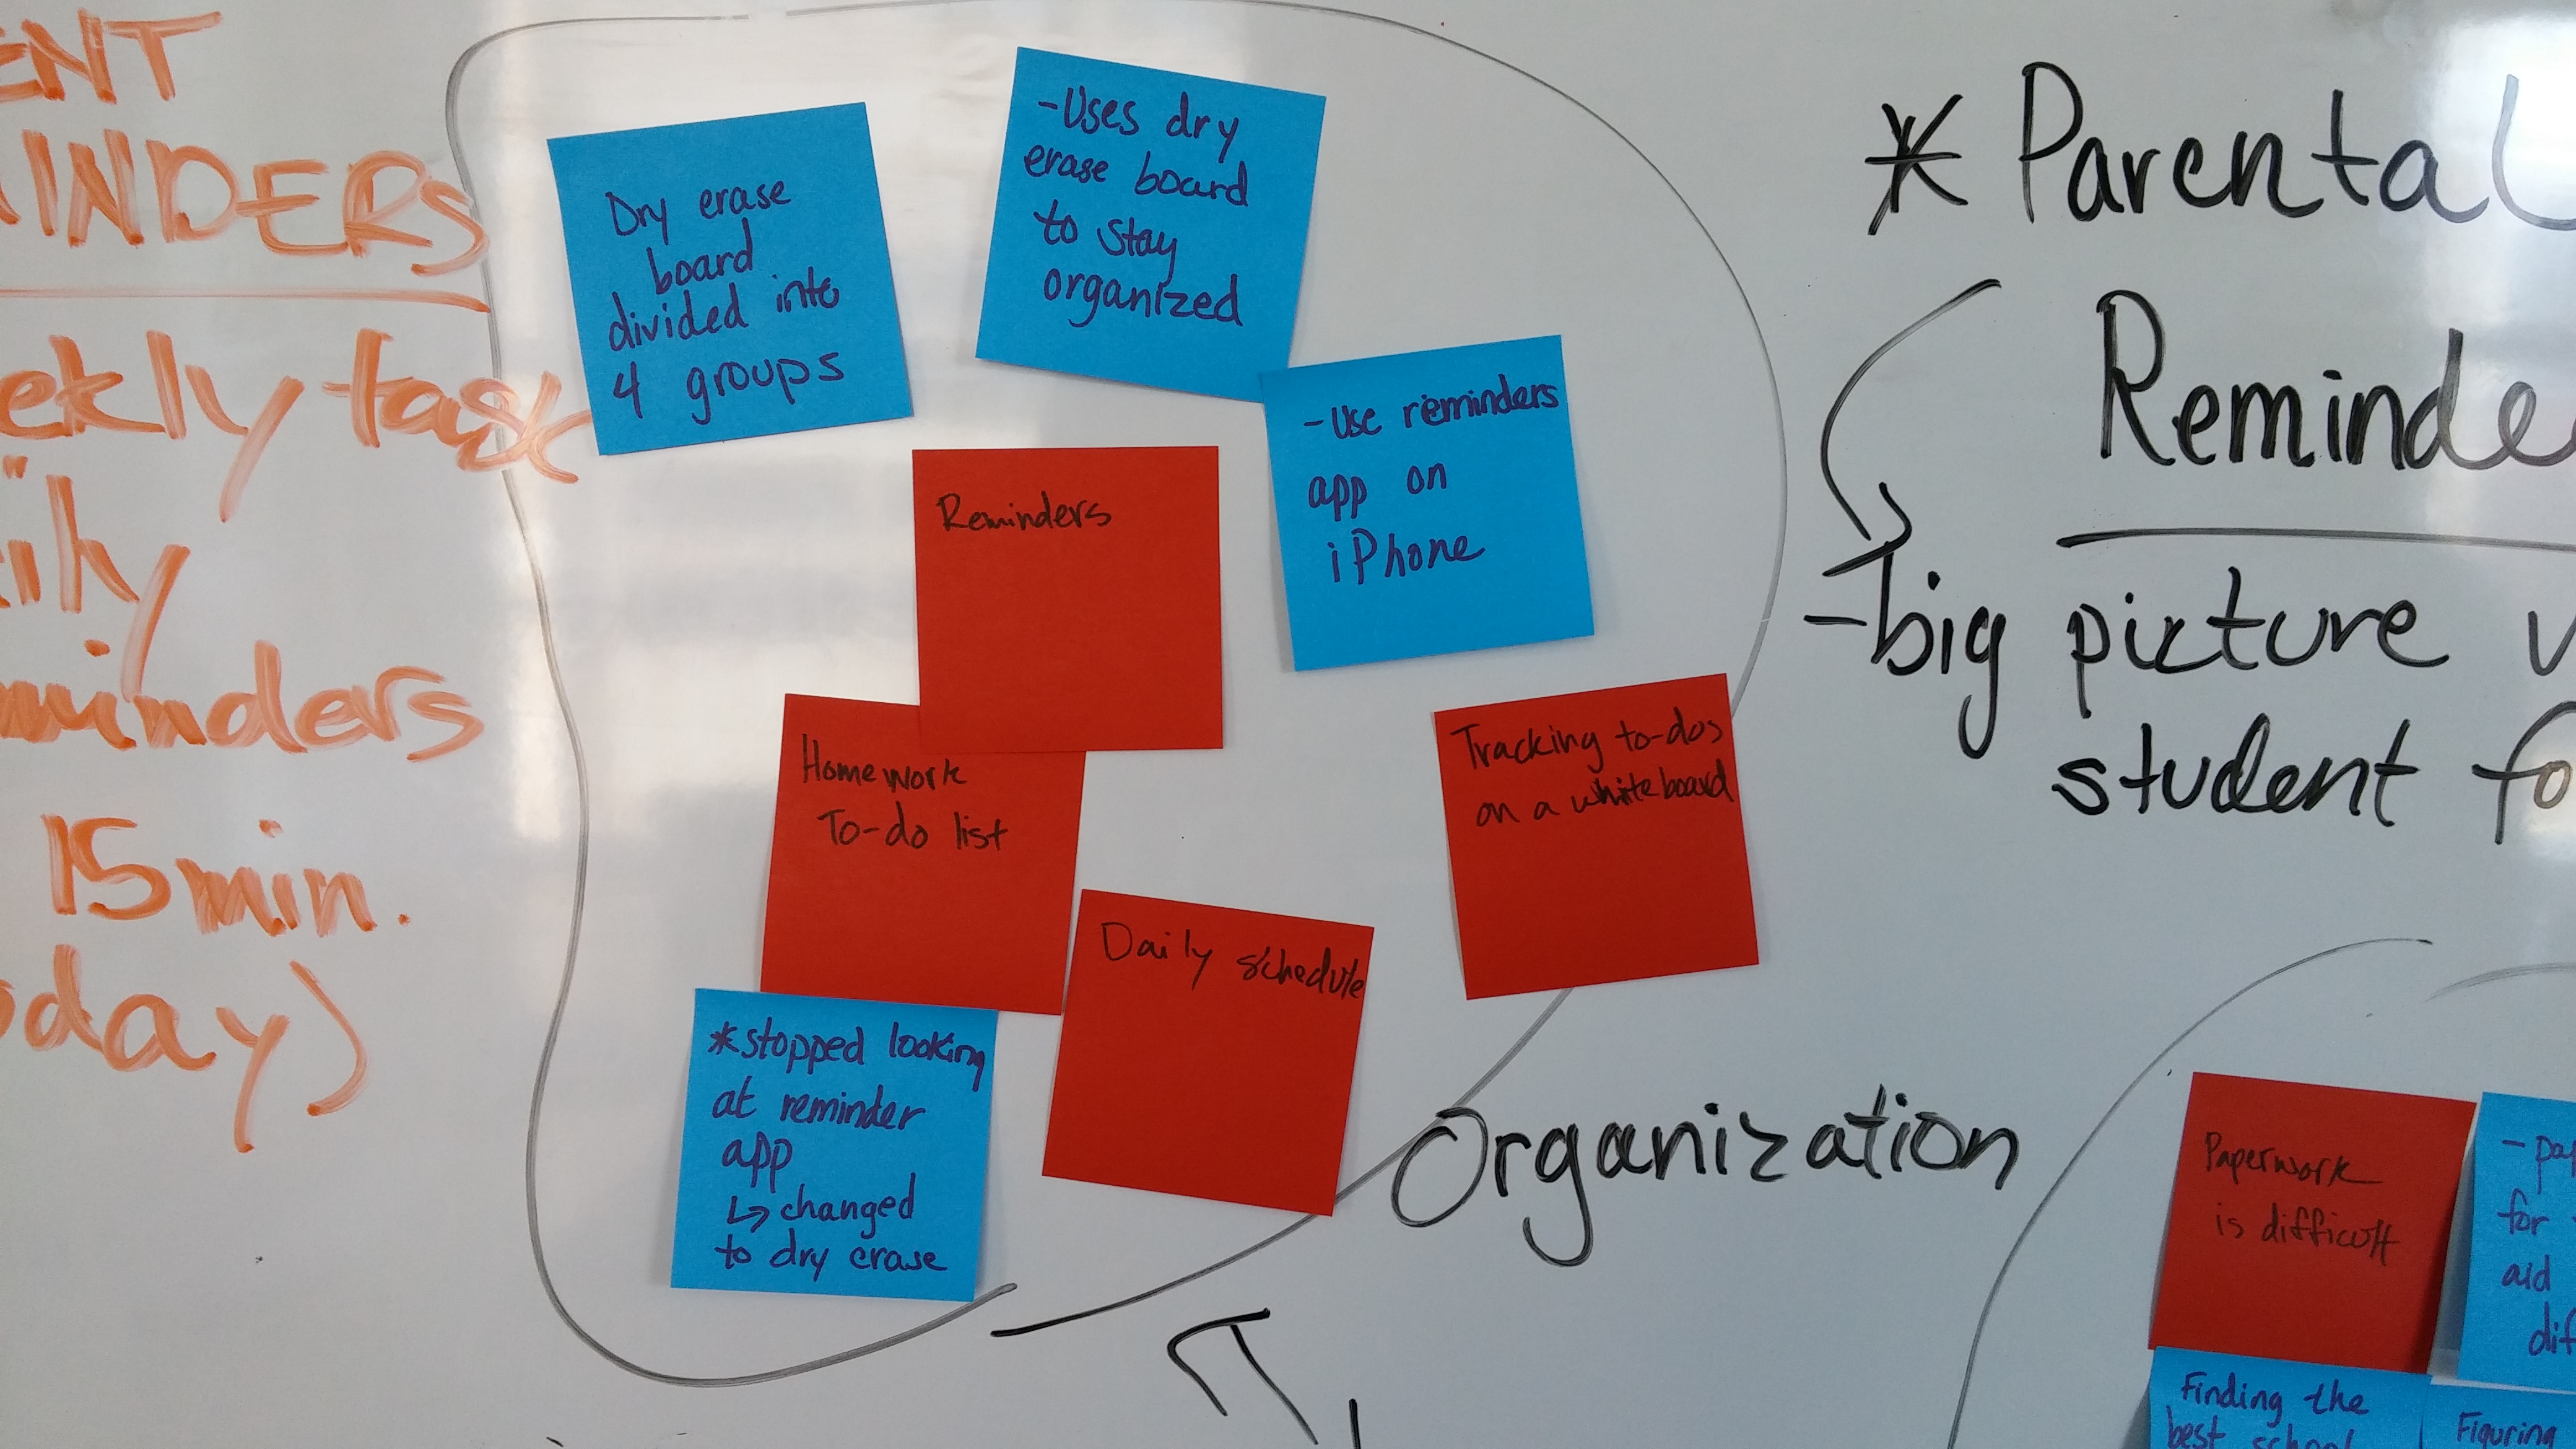 INDERS
task
minders
15 min.
Dry erase
board
divided into
4 groups
-Uses dry
erase board
to stay
organized
-Use reminders
app on
iPhone
Reminders
Homework
To-do list
Tracking to-dos
on a whiteboard
Daily schedule
*stopped looking
at reminder
app
↳ changed
to dry erase
Organization
* Parental
Reminde
-big picture
student fo
Paperwork
is difficult
for
aid
Finding the
best
Figuring